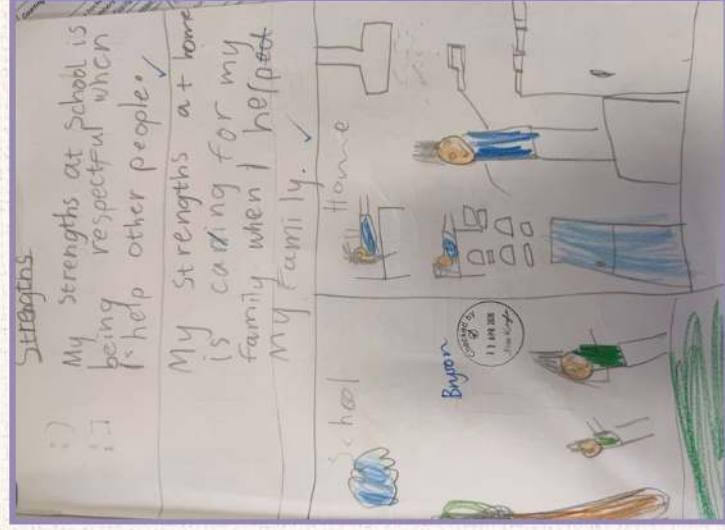 Strengths
:) My strengths at school is
:] being respectful when
I help other people.
My strengths at home
is caring for my
family when I help
my family.
School
Home
Bryson
Checked by